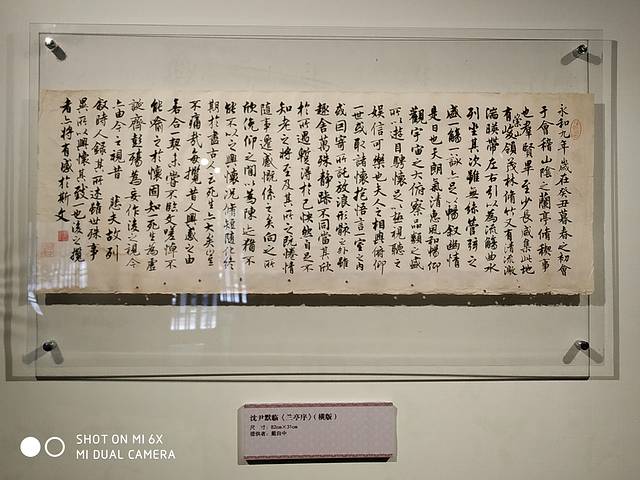 永和九年歲在癸丑暮春之初會
于會稽山陰之蘭亭脩稧事
也羣賢畢至少長咸集此地
有崇山峻領茂林脩竹又有清流激
湍暎帶左右引以為流觴曲水
列坐其次雖無絲竹管弦之
盛一觴一詠亦足以暢敘幽情
是日也天朗氣清惠風和暢仰
觀宇宙之大俯察品類之盛
所以遊目騁懷足以極視聽之
娛信可樂也夫人之相與俯仰
一世或取諸懷抱悟言一室之內
或因寄所託放浪形骸之外雖
趣舍萬殊靜躁不同當其欣
於所遇蹔得於己怏然自足不
知老之將至及其所之既惓情
隨事遷感慨係之矣向之所
欣俛仰之間以為陳迹猶不
能不以之興懷況脩短隨化終
期於盡古人云死生亦大矣豈
不痛哉每攬昔人興感之由
若合一契未嘗不臨文嗟悼不
能喻之於懷固知一死生為虛
誕齊彭殤為妄作後之視今
亦由今之視昔 悲夫故列
敘時人錄其所述雖世殊事
異所以興懷其致一也後之攬
者亦將有感於斯文
沈尹默临《兰亭序》(横版)
尺 寸：82cm×31cm
提供者：戴自中
SHOT ON MI 6X
MI DUAL CAMERA